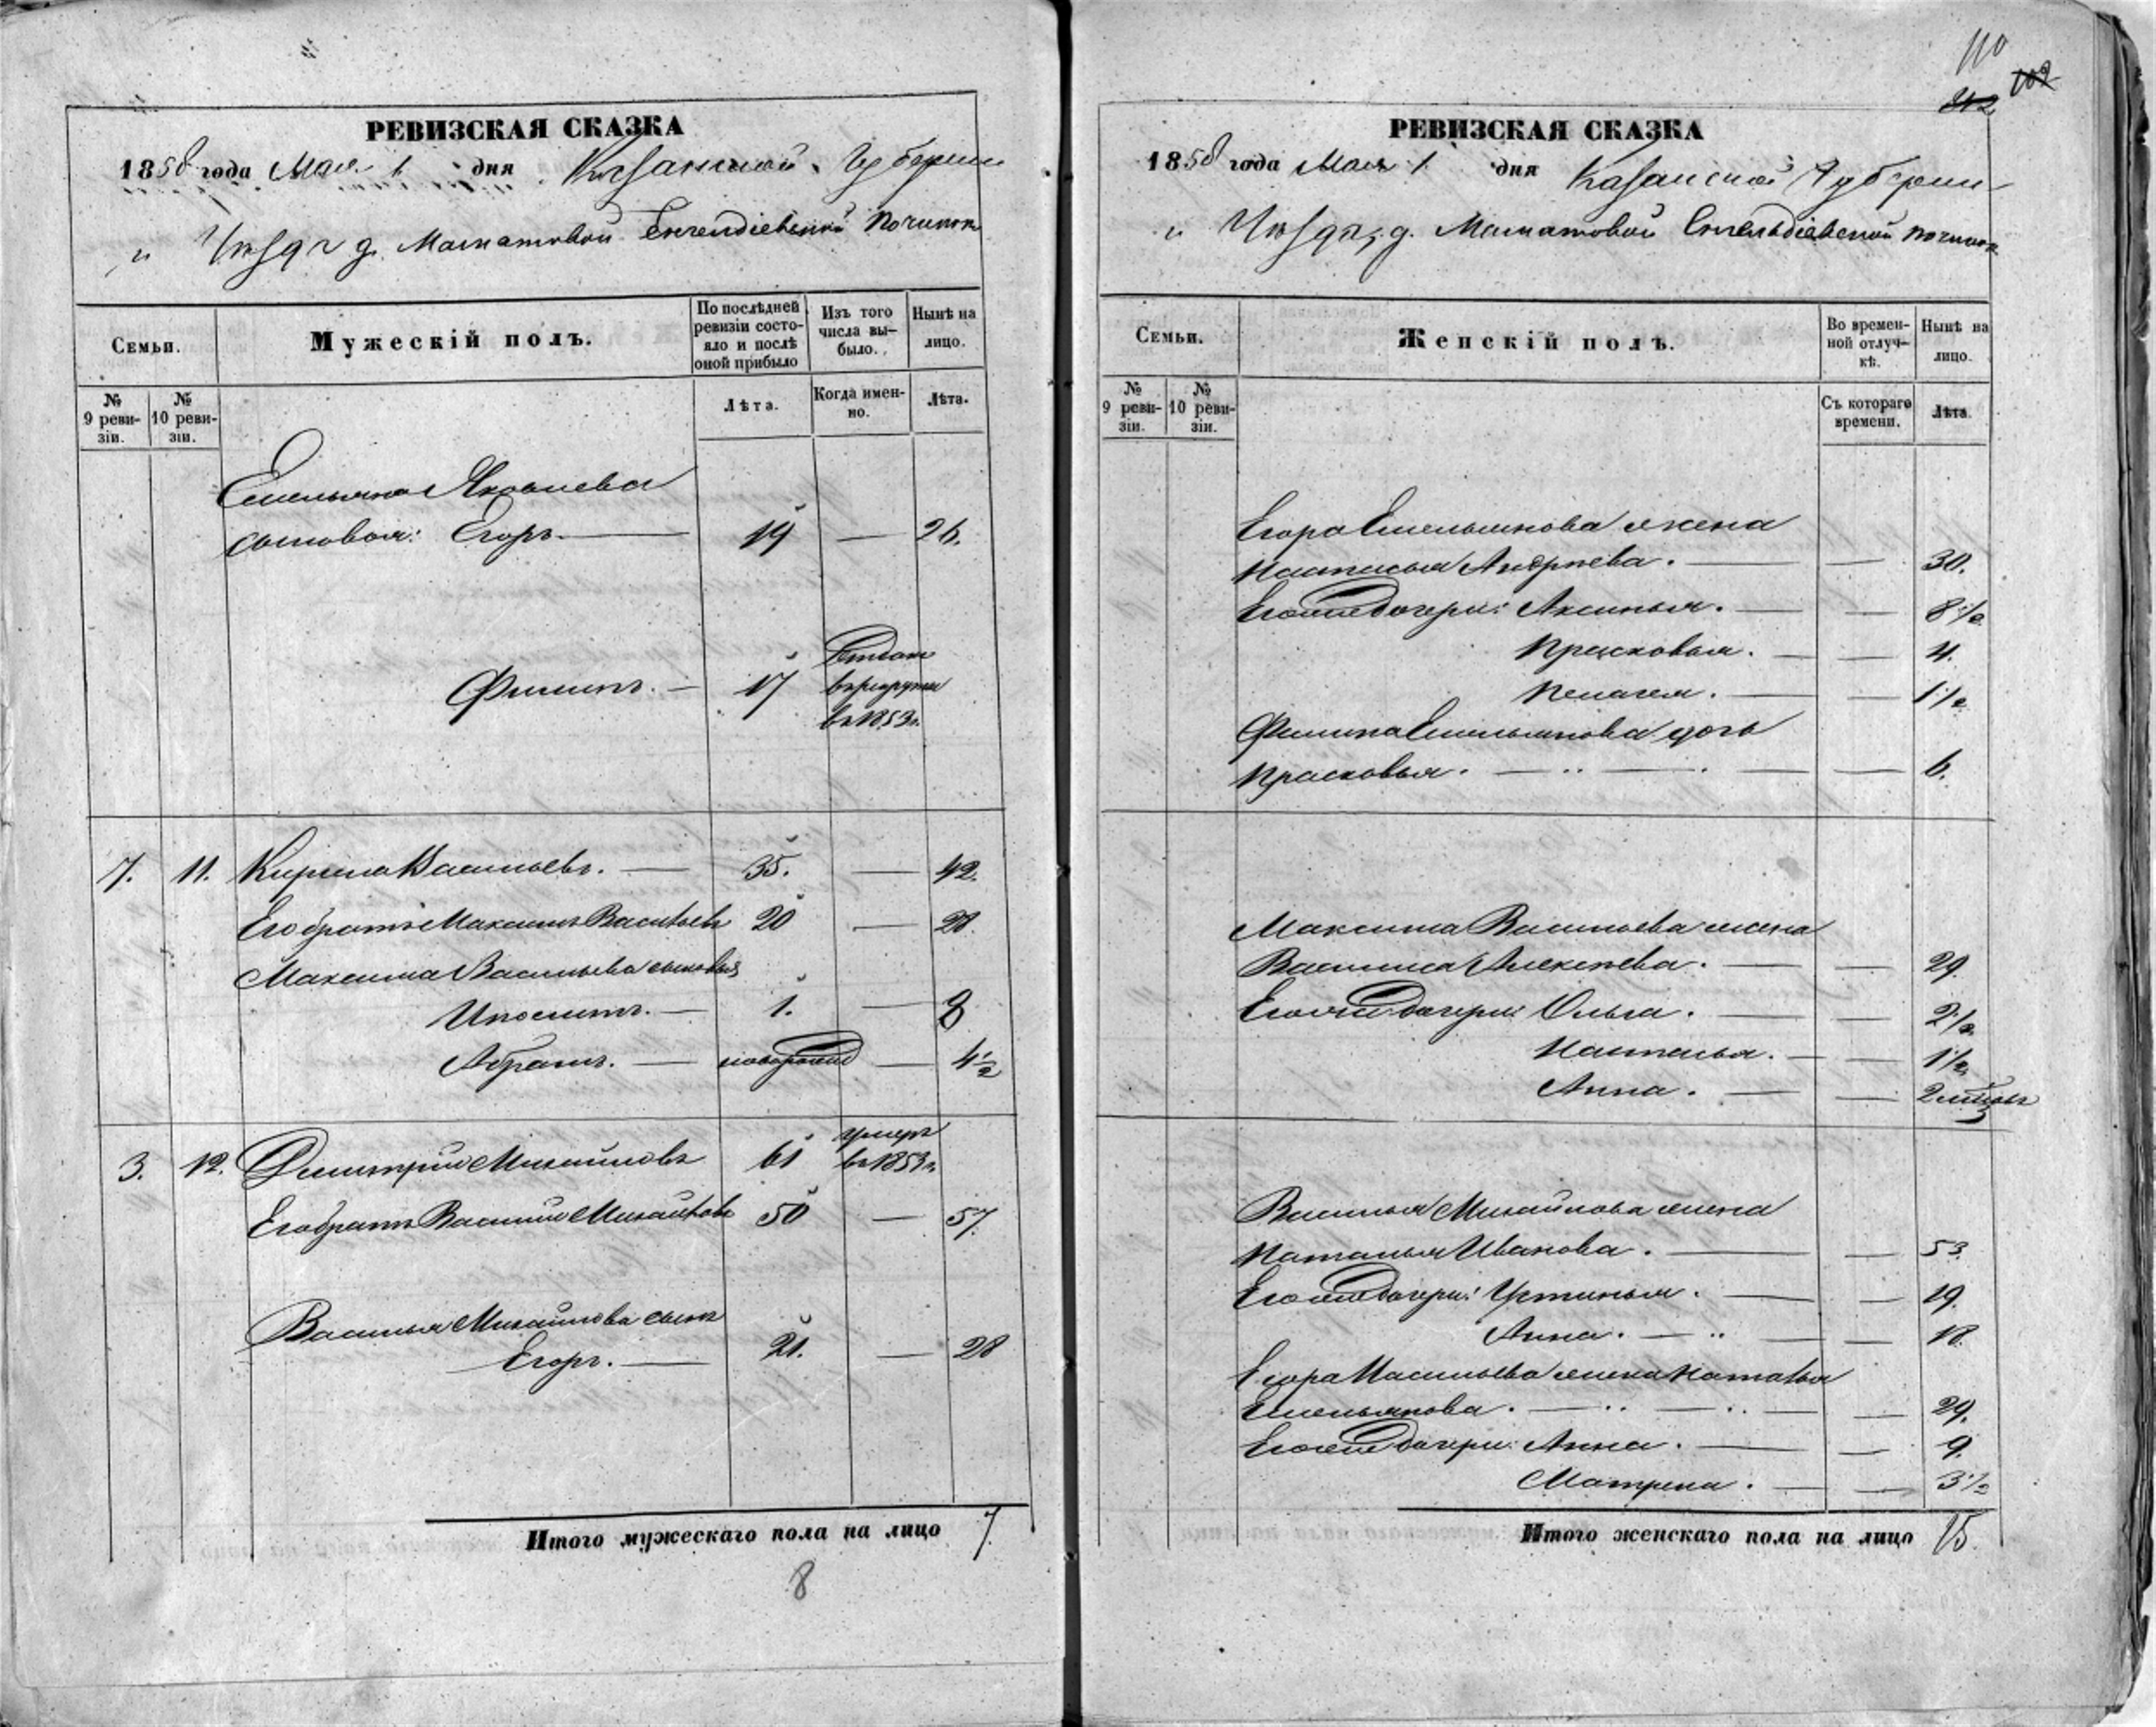 РЕВИЗСКАЯ СКАЗКА
1858 года Мая 1 дня Казанской Губернии
и Уѣзда д. Маматовой Енгелдіевской починок
Семьи.
Мужескій полъ.
По послѣдней ревизіи состояло и послѣ оной прибыло
Изъ того числа выбыло.
Нынѣ на лицо.
№ 9 ревизіи.
№ 10 ревизіи.
Лѣта.
Когда именно.
Лѣта.
Емельяна Яковлева
сыновья: Егоръ. — 19 — 26.
Филипъ. — 17 Отдан
в рекруты
въ 1853 г.
7. 11. Кирила Васильевъ. — 35. — 42.
Его братъ Максимъ Васильевъ 20 — 28.
Максима Васильева сыновья
Ипполитъ. — 1. — 8
Абрамъ. — новорожд — 4 1/2
3. 12. Дмитрій Михайловъ 61 умеръ
въ 1853 г.
Его братъ Василий Михайловъ 50 — 57.
Василья Михайлова сынъ
Егоръ. — 21. — 28
Итого мужескаго пола на лицо 7.
8
110
102
212
РЕВИЗСКАЯ СКАЗКА
1858 года Мая 1 дня Казанской Губернии
и Уѣзда, д. Маматовой Енгельдіевской починок
Семьи.
Женскій полъ.
Во временной отлучкѣ.
Нынѣ на лицо.
№ 9 ревизіи.
№ 10 ревизіи.
Съ котораго времени.
Лѣта
Егора Емельянова жена
Настасья Андреева. — — 30.
Его же дочери: Аксинья. — — 8 1/2
Прасковья. — — 4.
Пелагея. — — 1 1/2
Филипа Емельянова дочь
Прасковья. — — 6.
Максима Васильева жена
Василиса Алексеева. — — 29.
Его же дочери: Ольга. — — 2 1/2
Настасья. — — 1 1/2
Анна. — — 2 мѣсяц
Василья Михайлова жена
Наталья Иванова. — — 53.
Его же дочери: Устинья. — — 19.
Анна. — — 18.
Егора Васильева жена Наталья
Емельянова. — — 29.
Его же дочери: Анна. — — 9.
Матрена. — — 3 1/2
Итого женскаго пола на лицо 15.